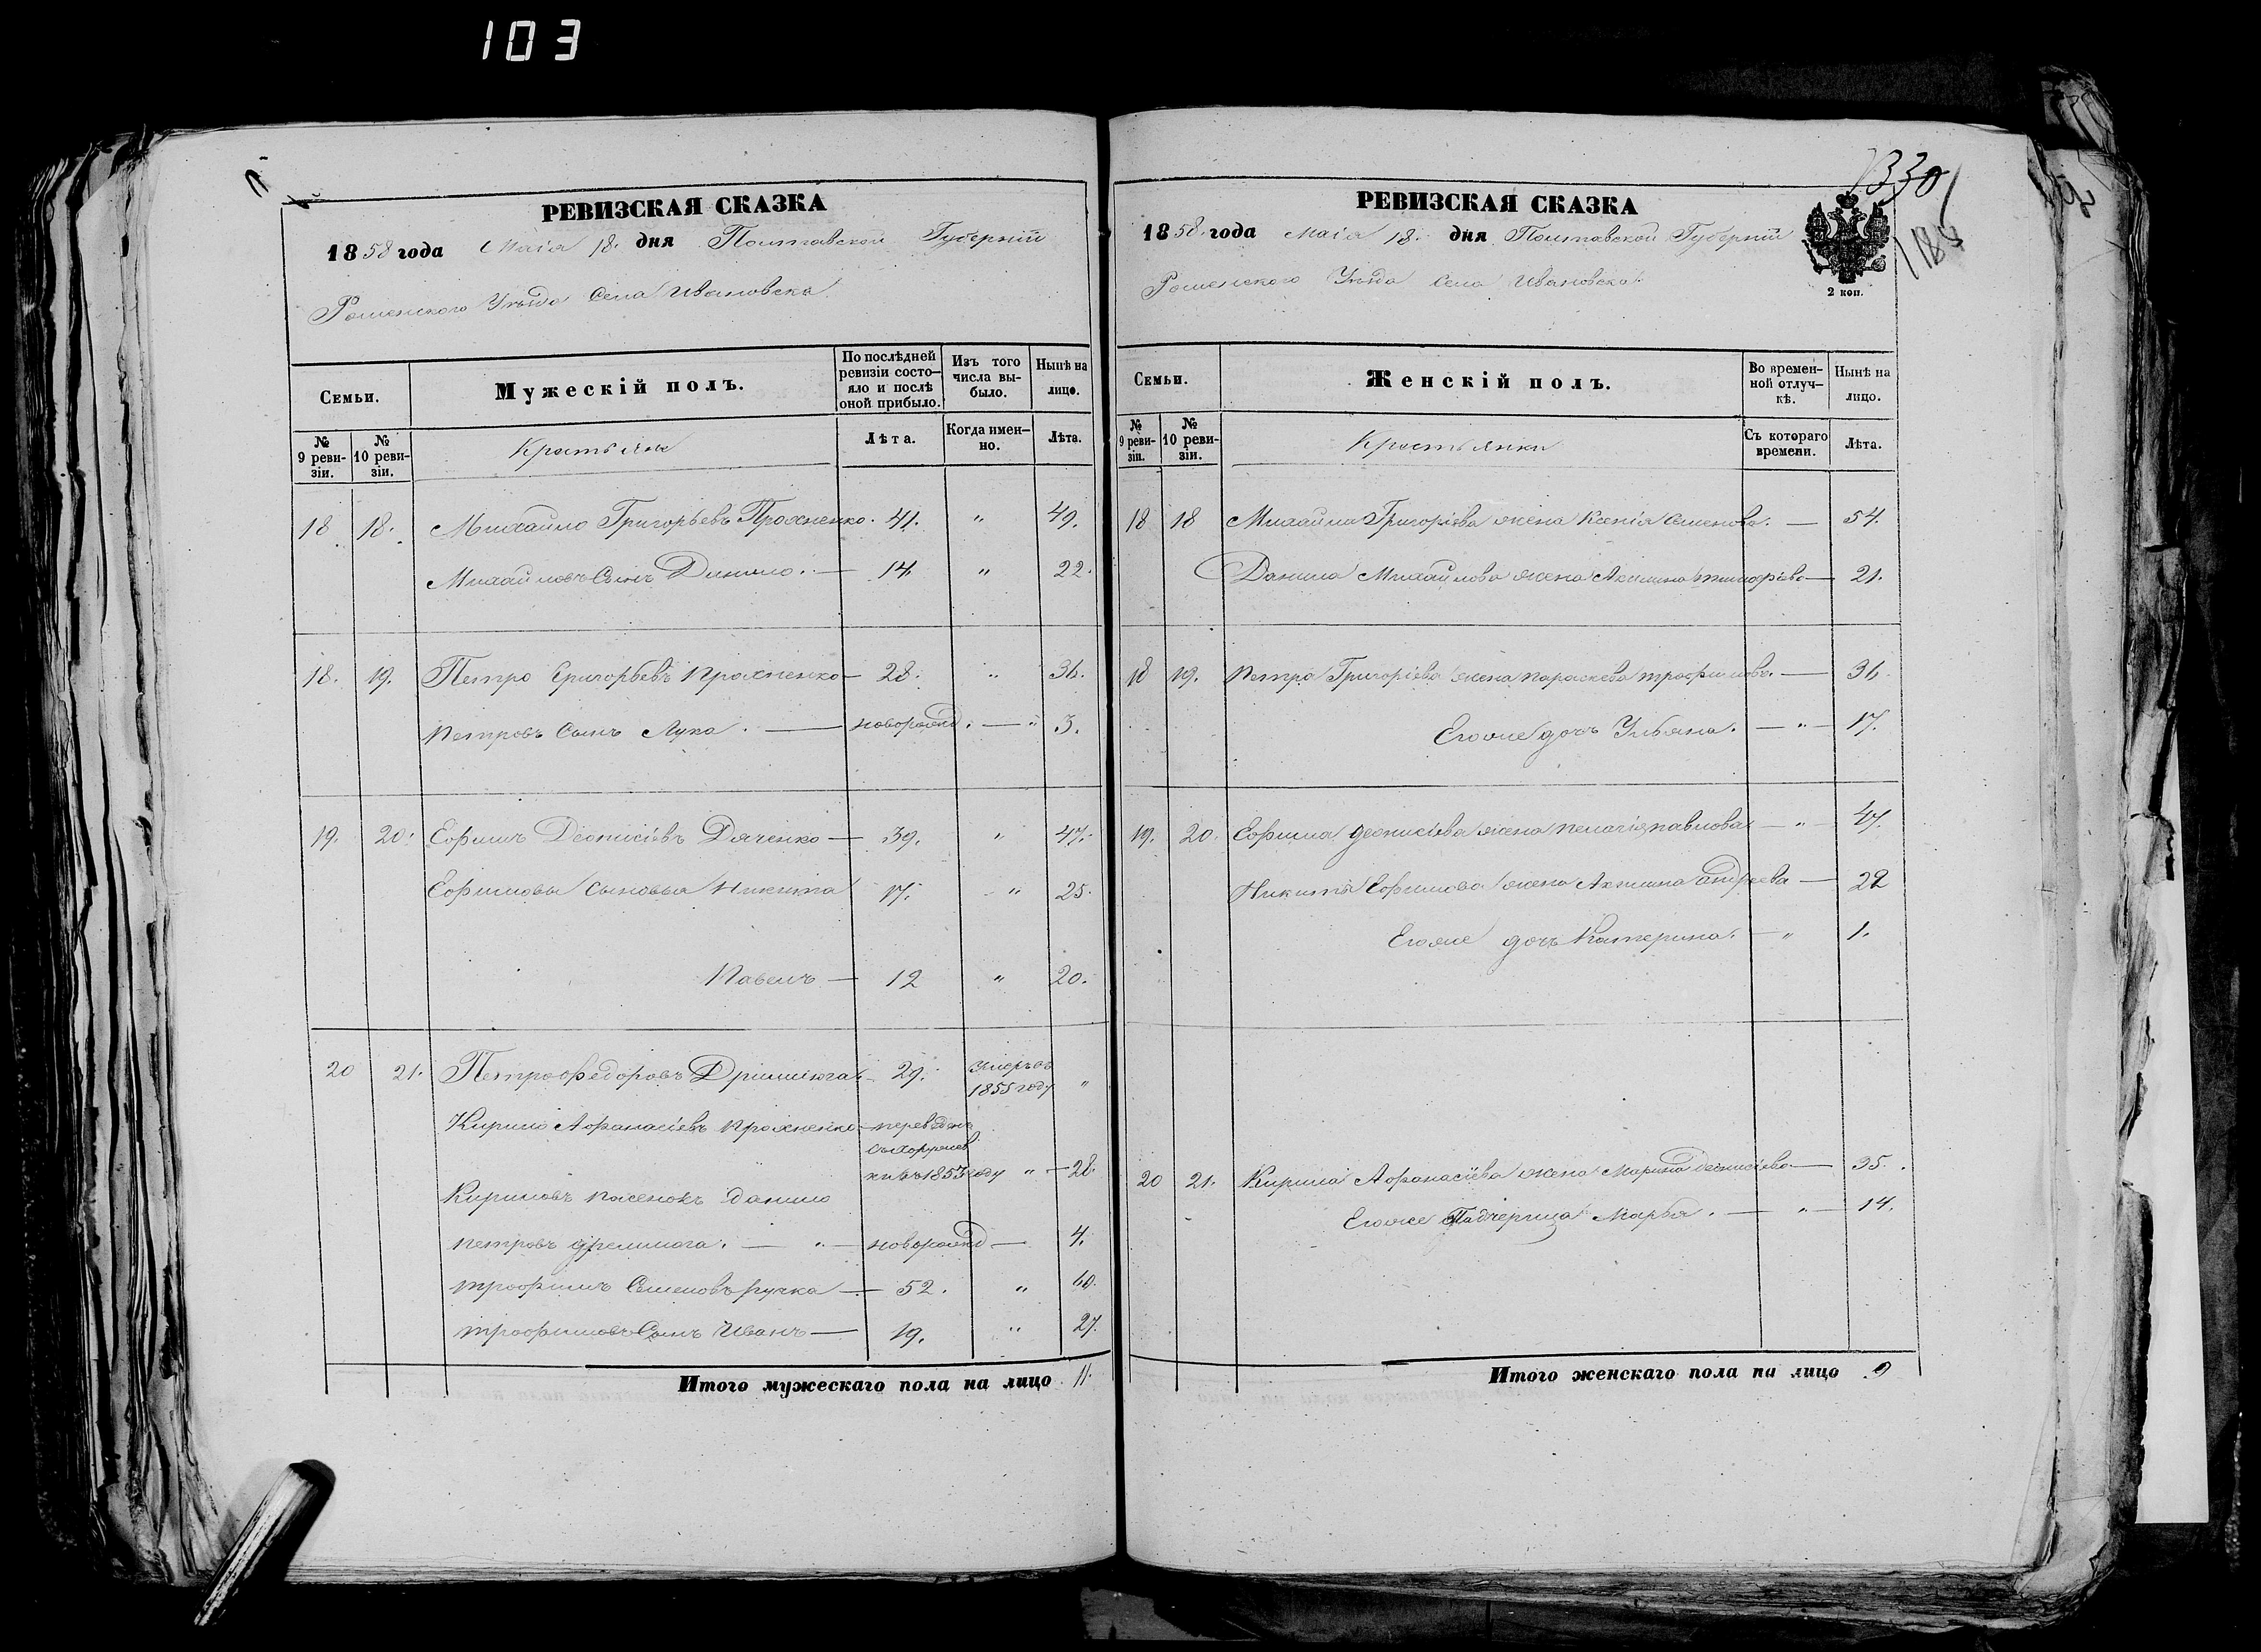 103
РЕВИЗСКАЯ СКАЗКА
1858 года Маія 18. дня Полтавской Губерніи
Роменского Уѣзда Села Ивановска
Семьи.
Мужескій полъ.
По послѣдней ревизіи состояло и послѣ оной прибыло.
Изъ того числа выбыло.
Нынѣ на лицо.
№ 9 ревизіи.
№ 10 ревизіи.
Крестьяне
Лѣта.
Когда именно.
Лѣта.
18 18. Михайло Григорьевъ Прохненко. 41. " 49.
Михайловъ Сынъ Данило. — 14. " 22.
18. 19. Петро Григорьевъ Прохненко — 28. " 36.
Петровъ Сынъ Лука. — новорожд. — " 3.
19. 20. Ефимъ Діонисіевъ Дяченко — 39. " 47.
Ефимовы Сыновья Никита 17. " 25.
Павелъ — 12 " 20.
20 21. Петро Федоровъ 29. умеръ въ 1855 году "
Кирило Афанасіевъ Прохненко — переведенъ
въ 1853 году " — 28.
Кириловъ пасенокъ Данило
Петровъ — " — новорожд — 4.
Трофимъ Семеновъ Ручка — 52. " 60.
Трофимовъ Сынъ Иванъ — 19. " 27.
Итого мужескаго пола на лицо 11.
330
188
РЕВИЗСКАЯ СКАЗКА
1858. года Маія 18. дня Полтавской Губерніи
Роменского Уѣзда Села Ивановска
2 коп.
Семьи.
Женскій полъ.
Во временной отлучкѣ.
Нынѣ на лицо.
№ 9 ревизіи.
№ 10 ревизіи.
Крестьянки
Съ котораго времени.
Лѣта.
18 18 Михайла Григоріева жена Ксенія Семенова. — 54.
Данила Михайлова жена Акилина — 21.
18 19. Петра Григоріева жена Параскева Трофимова. — 36
Егоже дочь Ульяна. — " — 17.
19. 20. Ефима Деонисіева жена Пелагія Павлова — " — 47.
Никиты Ефимова жена Андреева — 22
Егоже дочь Катерина. — " 1.
20 21. Кирила Афанасіева жена Марина Деонисіева — 35.
Егоже Падчерица Марья. — " — 14.
Итого женскаго пола на лицо 9